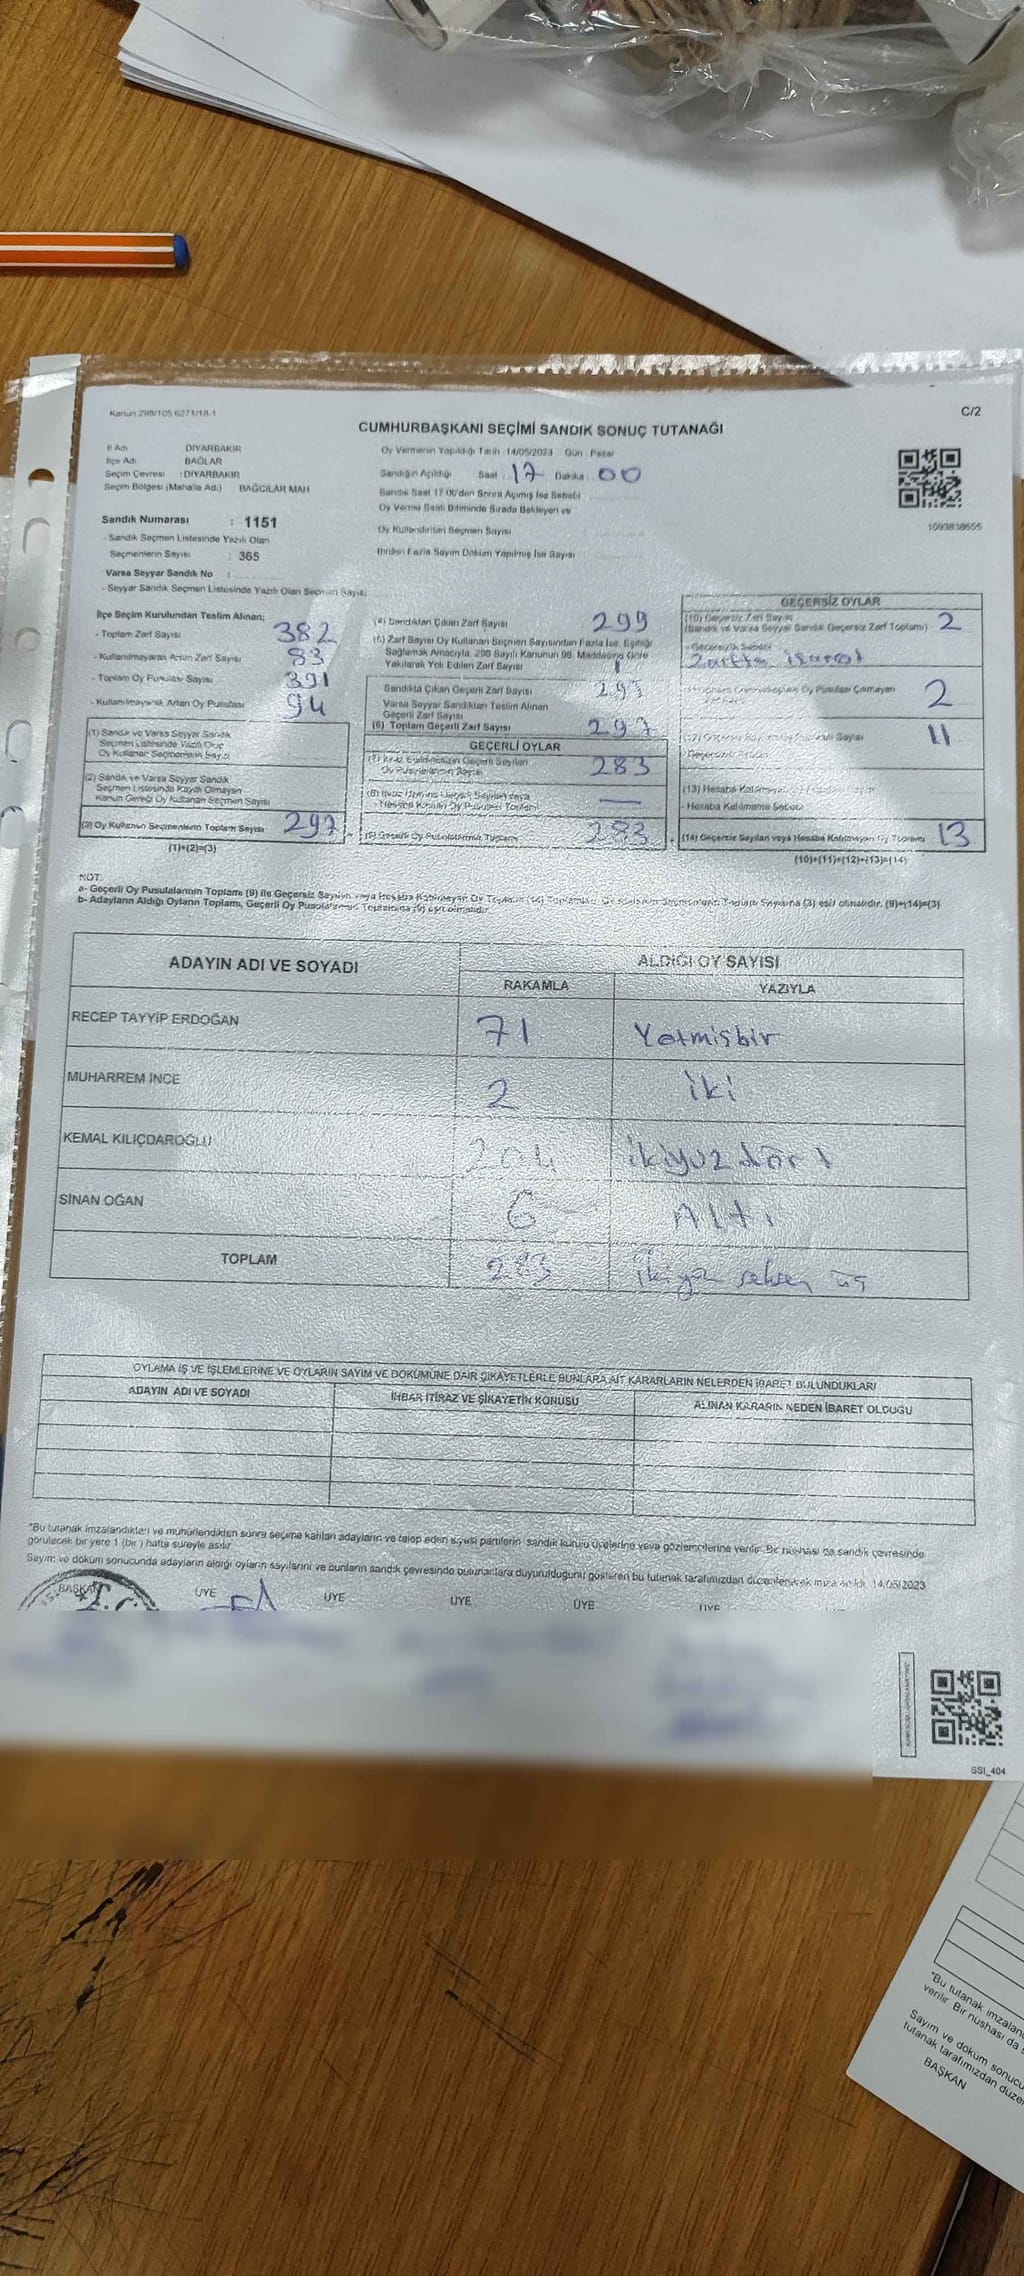 Kanun:298/105 6271/18-1
C/2
CUMHURBAŞKANI SEÇİMİ SANDIK SONUÇ TUTANAĞI
İl Adı DİYARBAKIR
İlçe Adı BAĞLAR
Seçim Çevresi : DİYARBAKIR
Seçim Bölgesi (Mahalle Adı) BAĞCILAR MAH
Oy Vermenin Yapıldığı Tarih : 14/05/2023 Gün : Pazar
Sandığın Açıldığı Saat : 17 Dakika : 00
Sandık Saat 17:00'den Sonra Açılmış İse Sebebi
Oy Verme Saati Bitiminde Sırada Bekleyen ve
Oy Kullandırılan Seçmen Sayısı
Birden Fazla Sayım Döküm Yapılmış İse Sayısı
1093838655
Sandık Numarası : 1151
- Sandık Seçmen Listesinde Yazılı Olan
Seçmenlerin Sayısı : 365
Varsa Seyyar Sandık No :
- Seyyar Sandık Seçmen Listesinde Yazılı Olan Seçmen Sayısı
İlçe Seçim Kurulundan Teslim Alınan;
- Toplam Zarf Sayısı 382
- Kullanılmayarak Artan Zarf Sayısı 83
- Toplam Oy Pusulası Sayısı 391
- Kullanılmayarak Artan Oy Pusulası 94
(1) Sandık ve Varsa Seyyar Sandık
Seçmen Listesinde Yazılı Olup
Oy Kullanan Seçmenlerin Sayısı
(2) Sandık ve Varsa Seyyar Sandık
Seçmen Listesinde Kayıtlı Olmayan
Kanun Gereği Oy Kullanan Seçmen Sayısı
(3) Oy Kullanan Seçmenlerin Toplam Sayısı 297
(1)+(2)=(3)
(4) Sandıktan Çıkan Zarf Sayısı 299
(5) Zarf Sayısı Oy Kullanan Seçmen Sayısından Fazla İse, Eşitliği
Sağlamak Amacıyla, 298 Sayılı Kanunun 98. Maddesine Göre
Yakılarak Yok Edilen Zarf Sayısı
Sandıkta Çıkan Geçerli Zarf Sayısı 297
Varsa Seyyar Sandıktan Teslim Alınan
Geçerli Zarf Sayısı
(6) Toplam Geçerli Zarf Sayısı 297
GEÇERLİ OYLAR
(7) İtiraz Edilmeksizin Geçerli Sayılan
Oy Pusulalarının Sayısı 283
(8) İtiraz Üzerine Geçerli Sayılan veya
Hesaba Katılan Oy Pusulası Toplamı —
(9) Geçerli Oy Pusulalarının Toplamı 283
GEÇERSİZ OYLAR
(10) Geçersiz Zarf Sayısı
(Sandık ve Varsa Seyyar Sandık Geçersiz Zarf Toplamı) 2
Oy Pusulası Çıkmayan
2
11
(13) Hesaba
- Hesaba Katılmama Sebebi
(14) Geçersiz Sayılan veya Hesaba Katılmayan Oy Toplamı 13
(10)+(11)+(12)+(13)=(14)
NOT:
a- Geçerli Oy Pusulalarının Toplamı (9) ile Geçersiz Sayılan veya Hesaba Katılmayan Oy Toplamı (14) Toplamları, Oy Kullanan Seçmenlerin Toplam Sayısına (3) eşit olmalıdır. (9)+(14)=(3)
b- Adayların Aldığı Oyların Toplamı, Geçerli Oy Pusulalarının Toplamına (9) eşit olmalıdır.
ADAYIN ADI VE SOYADI ALDIĞI OY SAYISI
RAKAMLA YAZIYLA
RECEP TAYYİP ERDOĞAN 71 Yetmişbir
MUHARREM İNCE 2 iki
KEMAL KILIÇDAROĞLU 204 ikiyüzdört
SİNAN OĞAN 6 Altı
TOPLAM 283 ikiyüz seksen üç
OYLAMA İŞ VE İŞLEMLERİNE VE OYLARIN SAYIM VE DÖKÜMÜNE DAİR ŞİKAYETLERLE BUNLARA AİT KARARLARIN NELERDEN İBARET BULUNDUKLARI
ADAYIN ADI VE SOYADI İHBAR İTİRAZ VE ŞİKAYETİN KONUSU ALINAN KARARIN NEDEN İBARET OLDUĞU
*Bu tutanak imzalandıktan ve mühürlendikten sonra seçime katılan adayların ve talep eden siyasi partilerin sandık kurulu üyelerine veya gözlemcilerine verilir. Bir nüshası da sandık çevresinde
görülecek bir yere 1 (bir) hafta süreyle asılır.
Sayım ve döküm sonucunda adayların aldığı oyların sayılarını ve bunların sandık çevresinde bulunanlara duyurulduğunu gösteren bu tutanak tarafımızdan düzenlenerek imza edildi. 14/05/2023
BAŞKAN ÜYE ÜYE ÜYE ÜYE ÜYE
SSI_404
*Bu tutanak imzalan
verilir. Bir nüshası da s
Sayım ve döküm sonucu
tutanak tarafımızdan düze
BAŞKAN